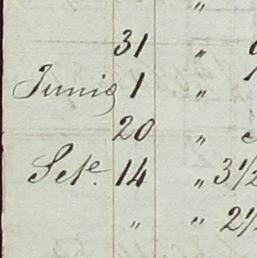 "
31 "
Junio 1 "
20 "
Sete. 14 " 3 1/2
" " 2 1/